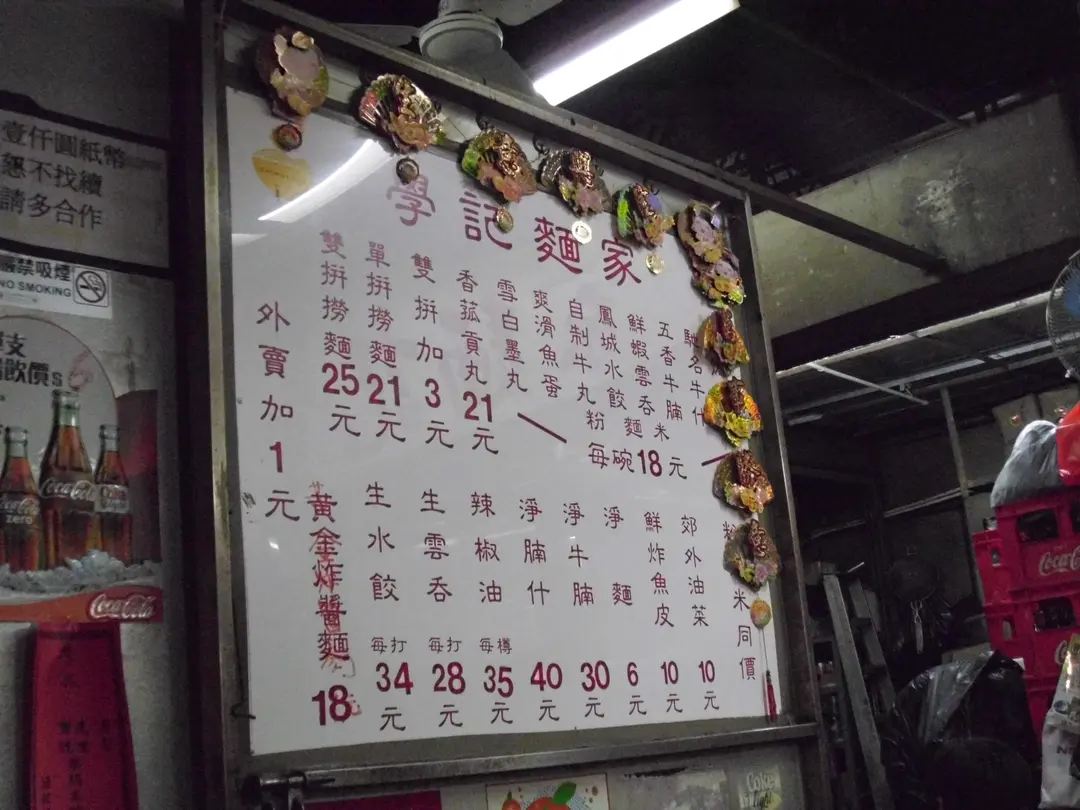 壹仟圓紙幣
恕不找續
請多合作
嚴禁吸煙
NO SMOKING
Coca-Cola
zero
Coca-Cola
學記麵家
馳名牛什
五香牛腩
鮮蝦雲吞
鳳城水餃
自制牛丸
爽滑魚蛋
雪白墨丸
粉麵米
每碗18元
香菰貢丸21元
雙拼加3元
單拼撈麵21元
雙拼撈麵25元
外賣加1元
粉米同價
郊外油菜10元
鮮炸魚皮10元
淨麵6元
淨牛腩30元
淨腩什40元
辣椒油每樽35元
生雲吞每打28元
生水餃每打34元
黃金炸醬麵18
Coca-Cola
Coke